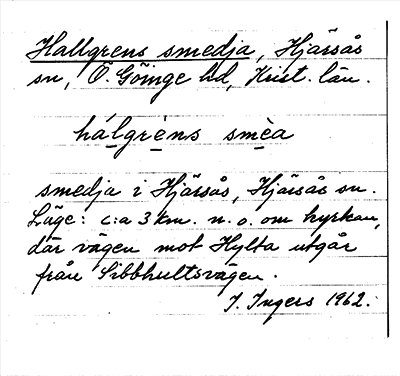 Hallgrens smedja, Hjärsås
sn, Ö. Göinge hd, Krist. län.
hálgrèns smèa
smedja i Hjärsås, Hjärsås sn.
Läge: c:a 3 km. n.o. om kyrkan,
där vägen mot Hylta utgår
från Sibbhultsvägen.
J. Ingers 1962.